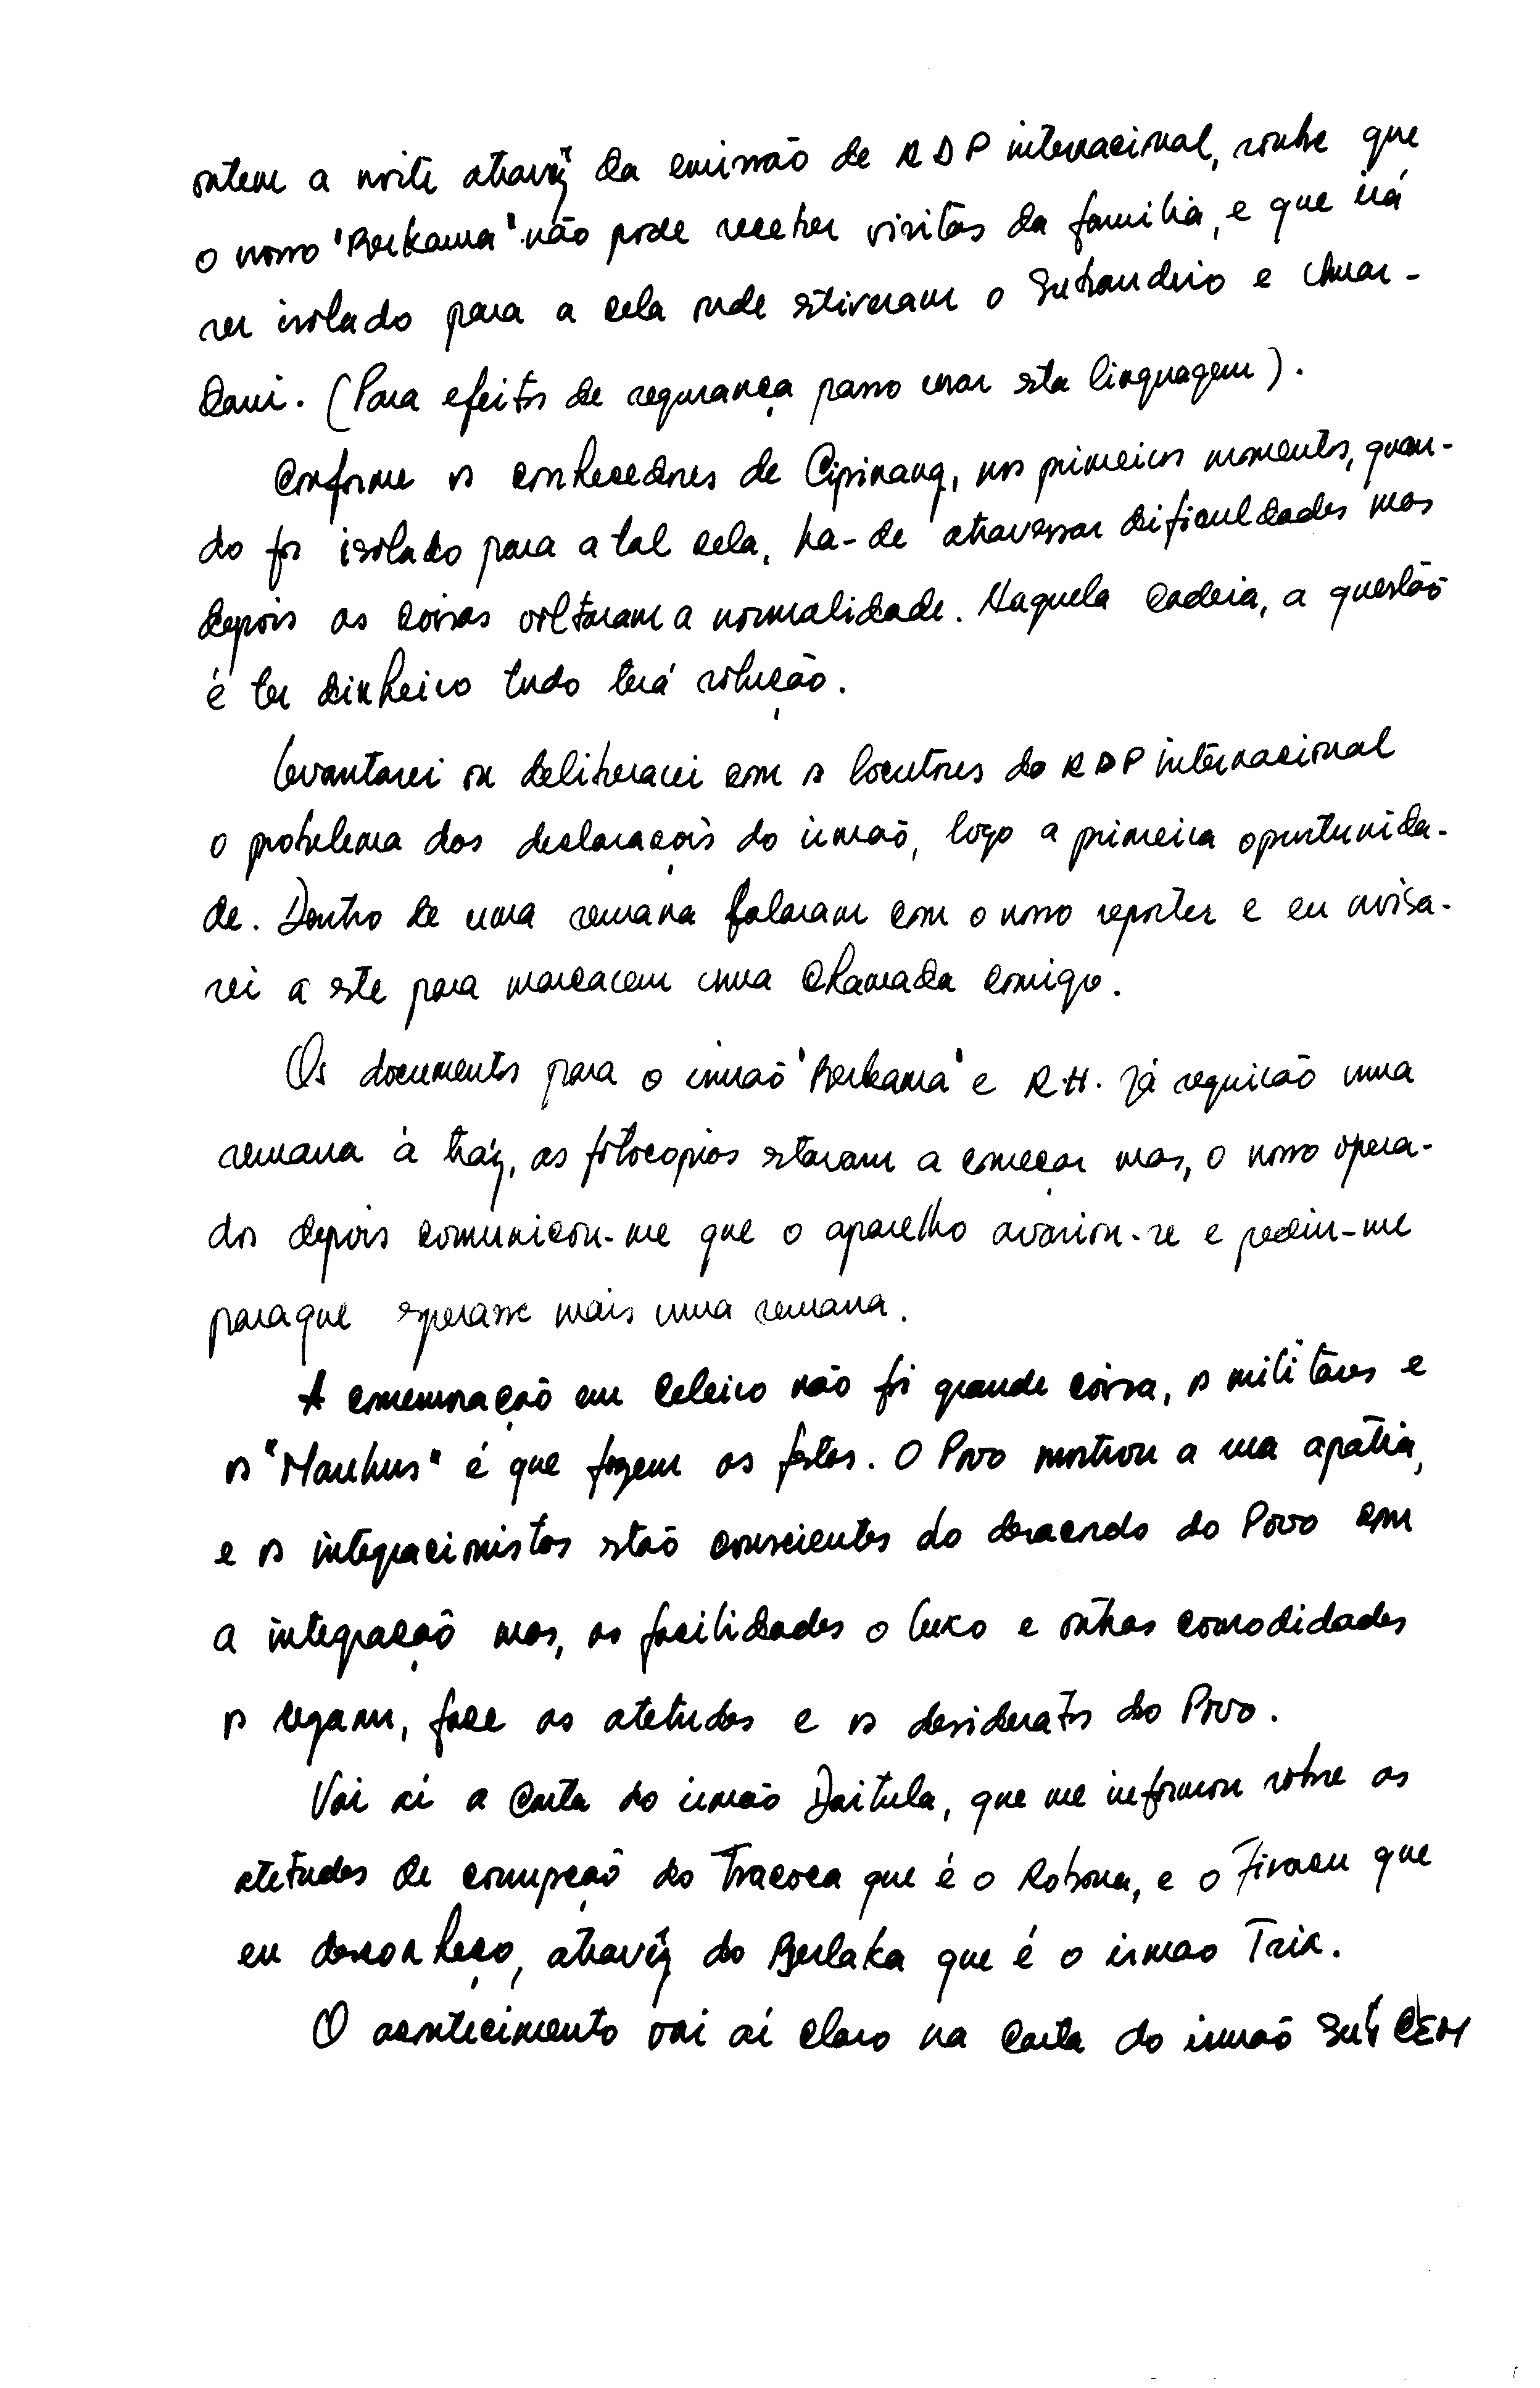 ontem a noite através da emissão de RDP internacional, soube que
o nosso "Berkama" não pode receber visitas da familia, e que irá
ser isolado para a cela onde estiveram o Subandrio e Anwar-
Dani. (Para efeitos de segurança passo usar esta linguagem).
Conforme os conhecedores de Cipinang, nos primeiros momentos, quan-
do for isolado para a tal cela, ha-de atravessar dificuldades mas
depois as coisas voltaram a normalidade. Naquela Cadeia, a questão
é ter dinheiro tudo terá solução.
Levantarei ou deliberarei com os locutores da RDP internacional
o problema das declaraçõis do irmaõ, logo a primeira oportunida-
de. Dentro de uma semana falaram com o nosso reporter e eu avisa-
rei a este para marcarem uma chamada comigo.
Os documentos para o irmaõ 'Berkama' e R.H. já seguirão uma
semana à tráz, as fotocopias estavam a começar mas, o nosso opera-
dor depois comunicou-me que o aparelho avariou-se e pediu-me
paraque esperasse mais uma semana.
A comemoraçaõ em Celeiro não foi grande coisa, os militares e
os "Mauhus" é que fazem as festas. O Povo mostrou a sua apátia,
e os integracionistas estaõ conscientes do desacordo do Povo com
a integraçaõ mas, as facilidades o luxo e outras comodidades
os cegam, face as atetudes e os desideratos do Povo.
Vai aí a Carta do irmão Daitula, que me informou sobre as
atetudes de corrupçaõ do Tracoca que é o Robona, e o que
eu desconheço, através do Berlaka que é o irmao Trix.
O acontecimento vai aí claro na Carta do irmaõ